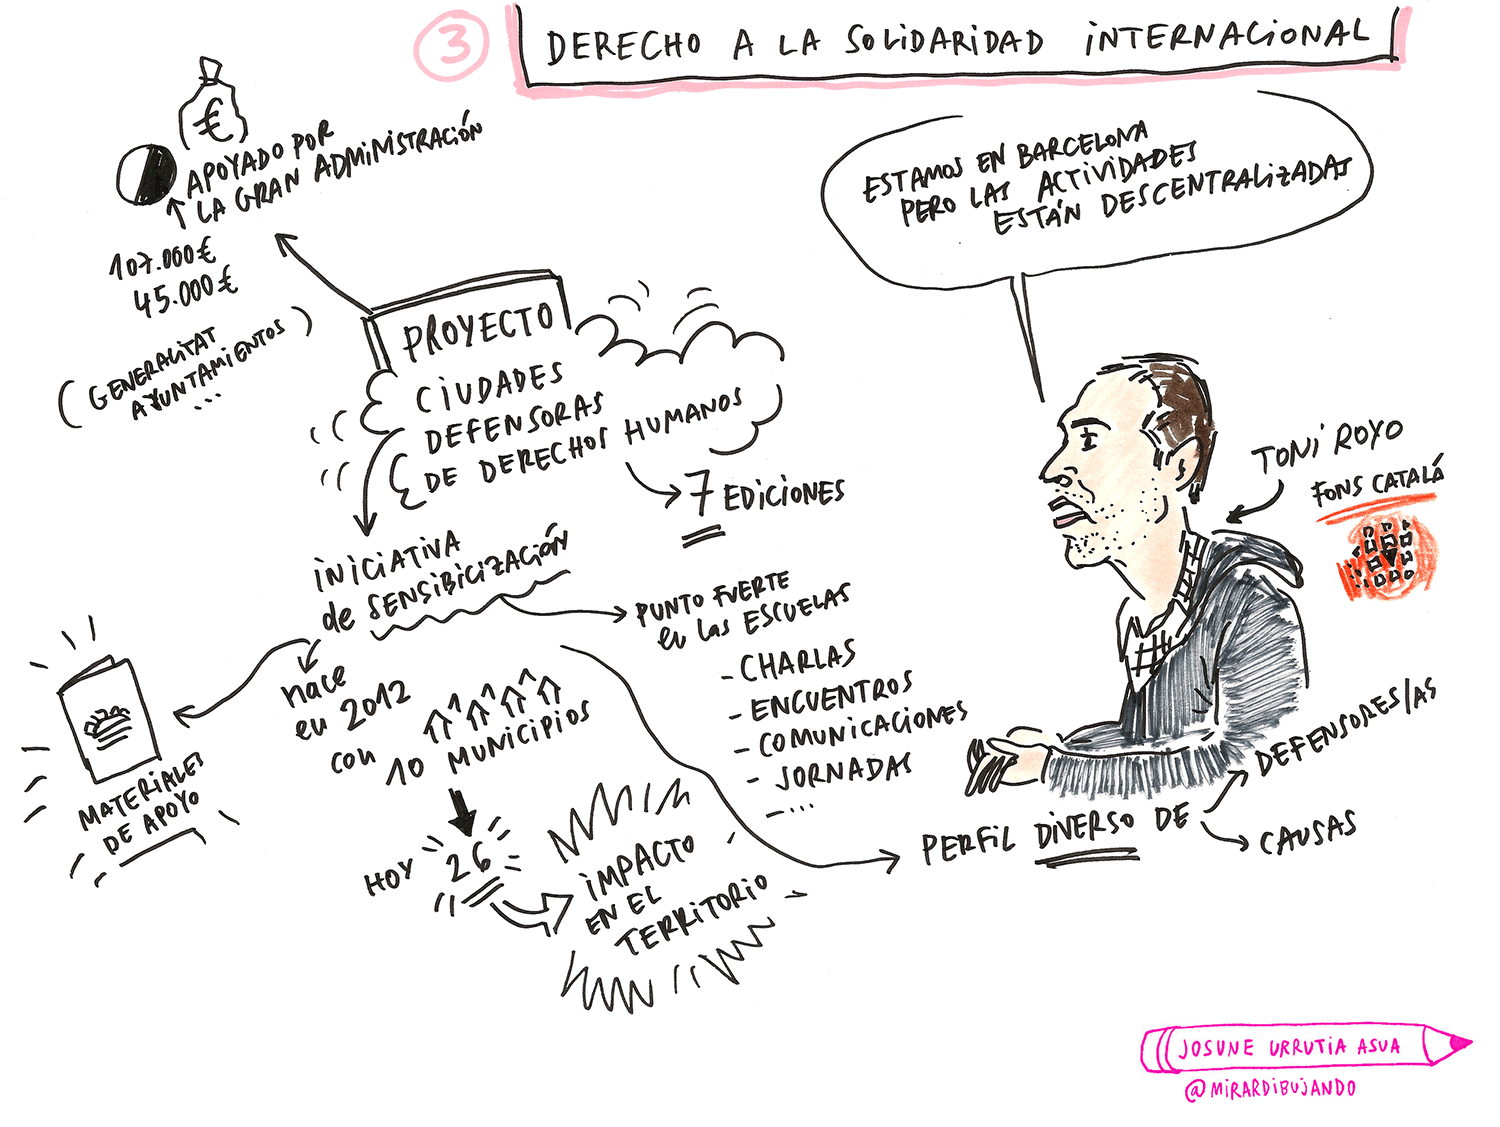 3
DERECHO A LA SOLIDARIDAD INTERNACIONAL
€
APOYADO POR
LA GRAN ADMINISTRACIÓN
107.000€
45.000€
(GENERALITAT
AYUNTAMIENTOS
...)
PROYECTO
CIUDADES
DEFENSORAS
DE DERECHOS HUMANOS
7 EDICIONES
INICIATIVA
de SENSIBILIZACIÓN
PUNTO FUERTE
EN las ESCUELAS
- CHARLAS
- ENCUENTROS
- COMUNICACIONES
- JORNADAS
- ...
nace
en 2012
con
10 MUNICIPIOS
HOY 26
IMPACTO
EN EL
TERRITORIO
MATERIALES
DE APOYO
ESTAMOS EN BARCELONA
PERO LAS ACTIVIDADES
ESTÁN DESCENTRALIZADAS
TONI ROYO
FONS CATALÁ
PERFIL DIVERSO DE
DEFENSORES/AS
CAUSAS
JOSUNE URRUTIA ASUA
@MIRARDIBUJANDO